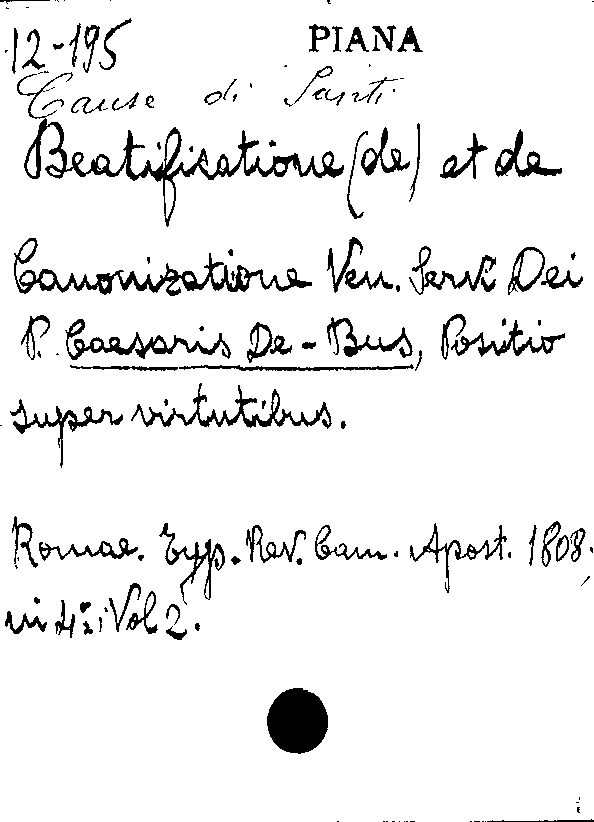 12-195 PIANA
Cause di Santi
Beatificatione (de) et de
Canonizatione Ven. Servi Dei
P. Caesaris De-Bus, Positio
super virtutibus.
Romae. Typ. Rev. Cam. Apost. 1808,
in 4º; Vol 2.